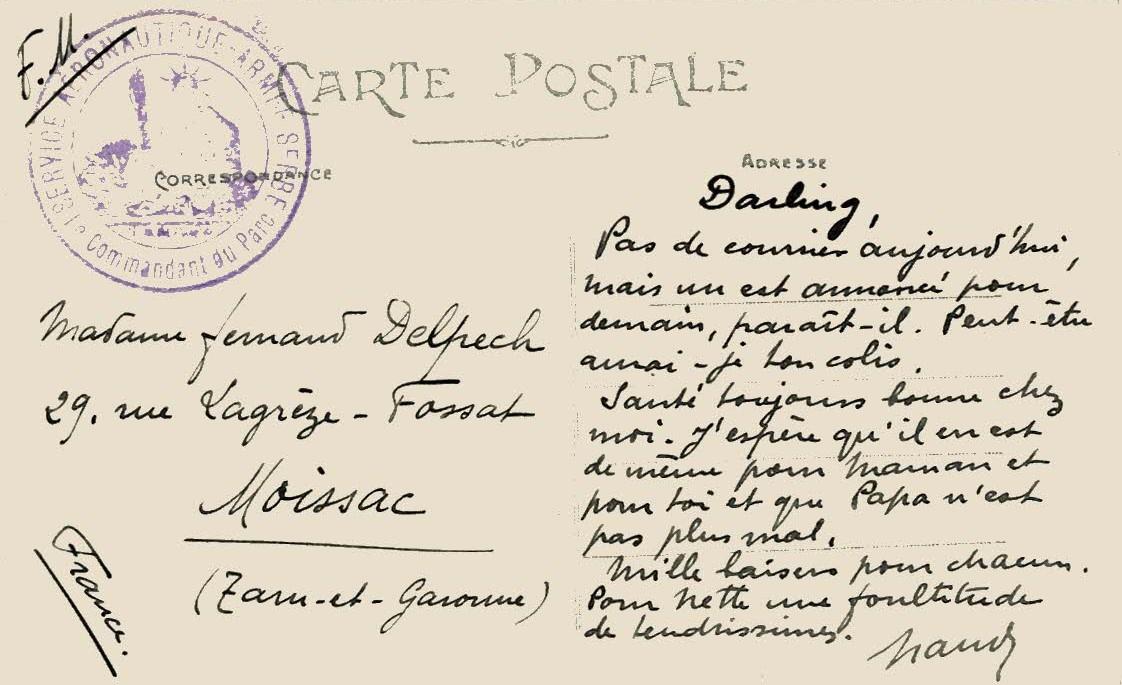 F.M.
SERVICE AÉRONAUTIQUE-ARMÉE SERBE
Commandant du Parc
CARTE POSTALE
CORRESPONDANCE
ADRESSE
Madame Fernand Delpech
29, rue Lagrèze-Fossat
Moissac
(Tarn-et-Garonne)
France.
Darling,
Pas de courrier aujourd'hui,
mais un est annoncé pour
demain, paraît-il. Peut-être
aurai-je ton colis.
Santé toujours bonne chez
moi. J'espère qu'il en est
de même pour Maman et
pour toi et que Papa n'est
pas plus mal.
Mille baisers pour chacun.
Pour Nette une foultitude
de tendrissimes.